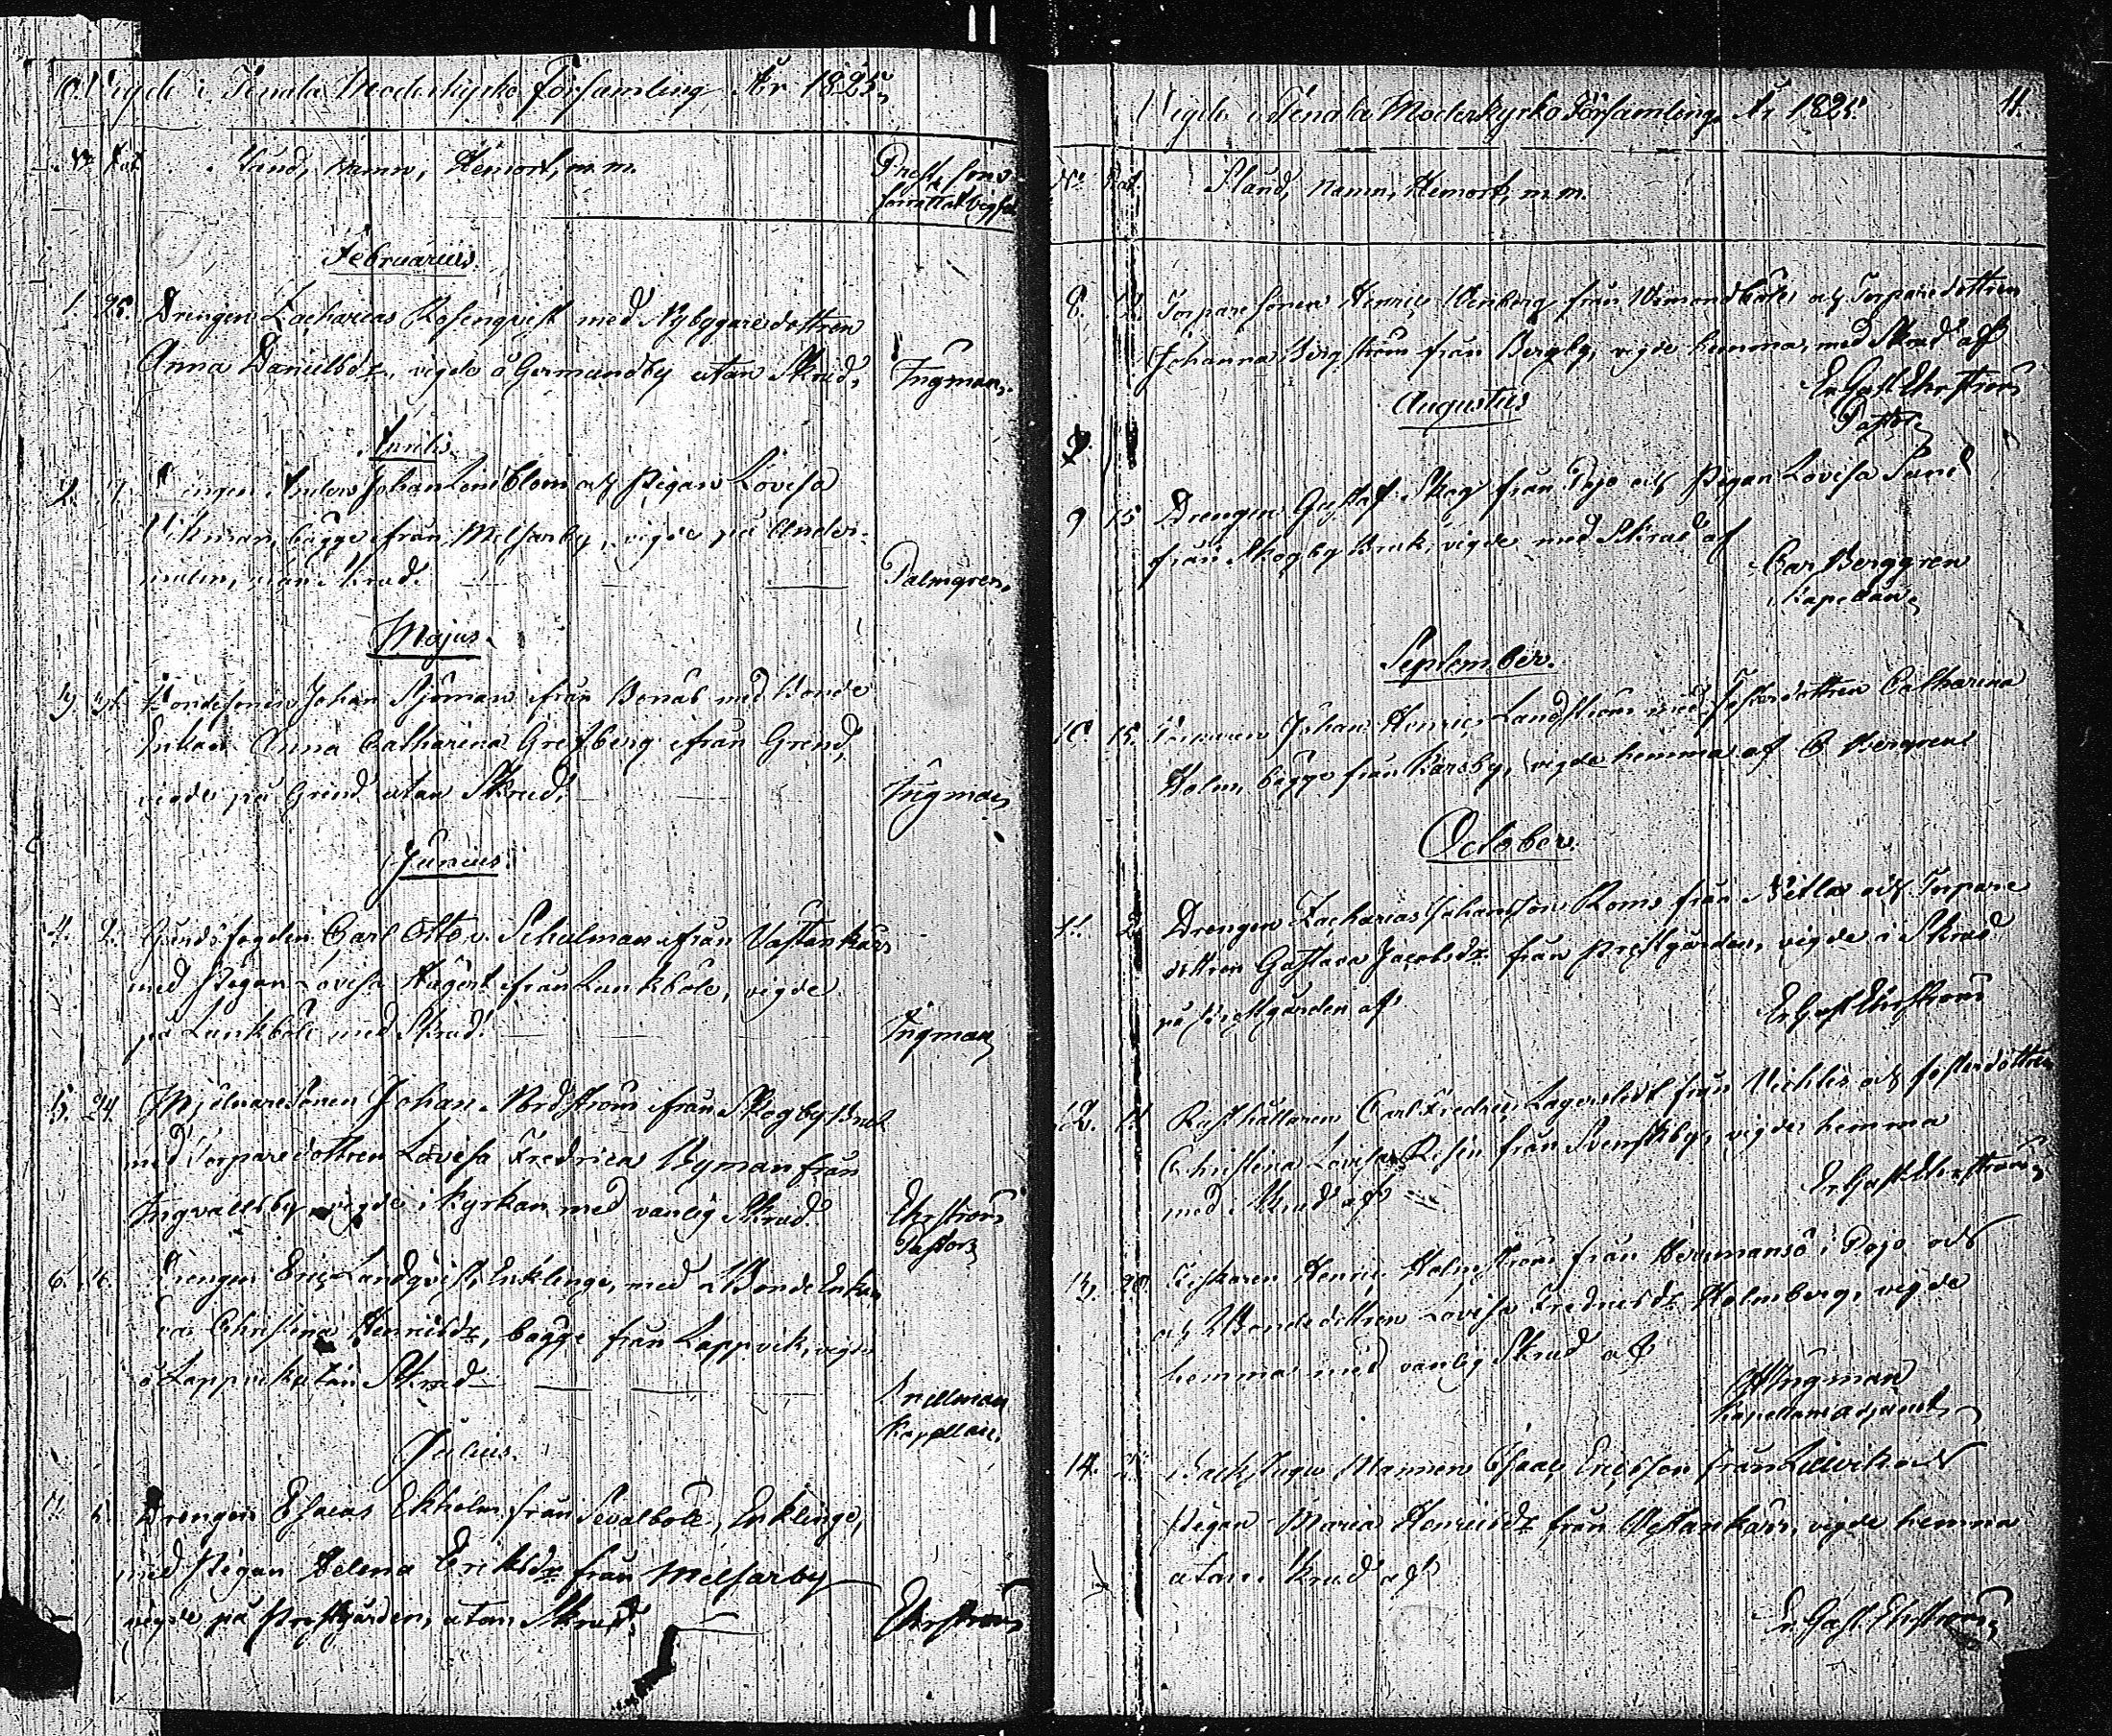 Vigde i Tenala Moderkyrko Församling År 1825.
No Dat. Stånd, Namn, Hemort, m.m. Prest, som
förrättat vigseln
Februarius.
1. Drengen Zacharias Rosenqvist med Nybyggaredottren
Anna Danielsdr, vigde å Germundby utan Skrud, Ingman.
Aprilis.
2. Drengen Anders Johan Lönnblom och Pigan Lovisa
Wikman, bägge från Melsarby, vigde på
utan Skrud. Palmgren.
Majus.
3. Bondesonen Johan Sjöman från Bonäs med Bonde
Enkan Anna Catharina Grefberg från Grend,
vigde på Grend utan Skrud. Ingman
Junius.
4. 2. Carl Otto v. Schulman från Västankärr
med Pigan Lovisa från Lunkböle, vigde
på Lunkböle med Skrud. Ingman
5. 24. Mjölnaresonen Johan Nordström från Skogby Bruk
med Torparedottren Lovisa Fredrica Byman från
Ingvallsby vigde i kyrkan med vanlig Skrud. Ehrström
Pastor
6. Drengen Eric Landqvist, Enklinge, med Bonde Enkan
Christina Henricsdr, bägge från Lappvik, vigde
å Lappvik utan Skrud
Kapellan.
Julius.
Drengen Esaias Ekholm från Sevalböle, Enklinge,
med Pigan Helena Eriksdr från Melsarby
vigde på Prestgården, utan Skrud. Ehrström
Vigde i Tenala Moderkyrko Församling År 1825. 11.
No Dat. Stånd, Namn, Hemort, m.m.
8. Torparesonen Henric från och Torparedottren
Johanna Bergström från Bergby, vigde hemma, med Skrud af
Er Gust Ehrström
Pastor
Augustus
9 15 Drengen Gustaf Skog från Pojo och Pigan Lovisa
från Skogby Bruk, vigde med Skrud af
Carl Berggren
Kapellan
September.
10 15. Johan Henric Landström med Fosterdottren Catharina
Holm, bägge från Karsby, vigde hemma af C Berggren
October.
11. 2 Drengen Zacharias Johansson Roms från och Torpare
dottren Gustava Jacobsdr från Prestgården, vigde i Skrud
på Prestgården af Er Gust Ehrström
12. Rusthållaren Carl Fredric Lagerstedt från och fosterdottren
Christina Lovisa från Svenskby, vigde hemma
med Skrud af Er Gust Ehrström
13. Fiskaren Henric Holmström från Hermansö i Pojo och
och Bondedottren Lovisa Fredricsdr Holmberg, vigde
hemma med vanlig Skrud af
Ingman
Kapellans adjunct
14. Backstugu Mannen Esaias Ericsson från och
Pigan Maria Henricsdr från Vestankärr, vigde hemma
utan Skrud af
Er Gust Ehrström